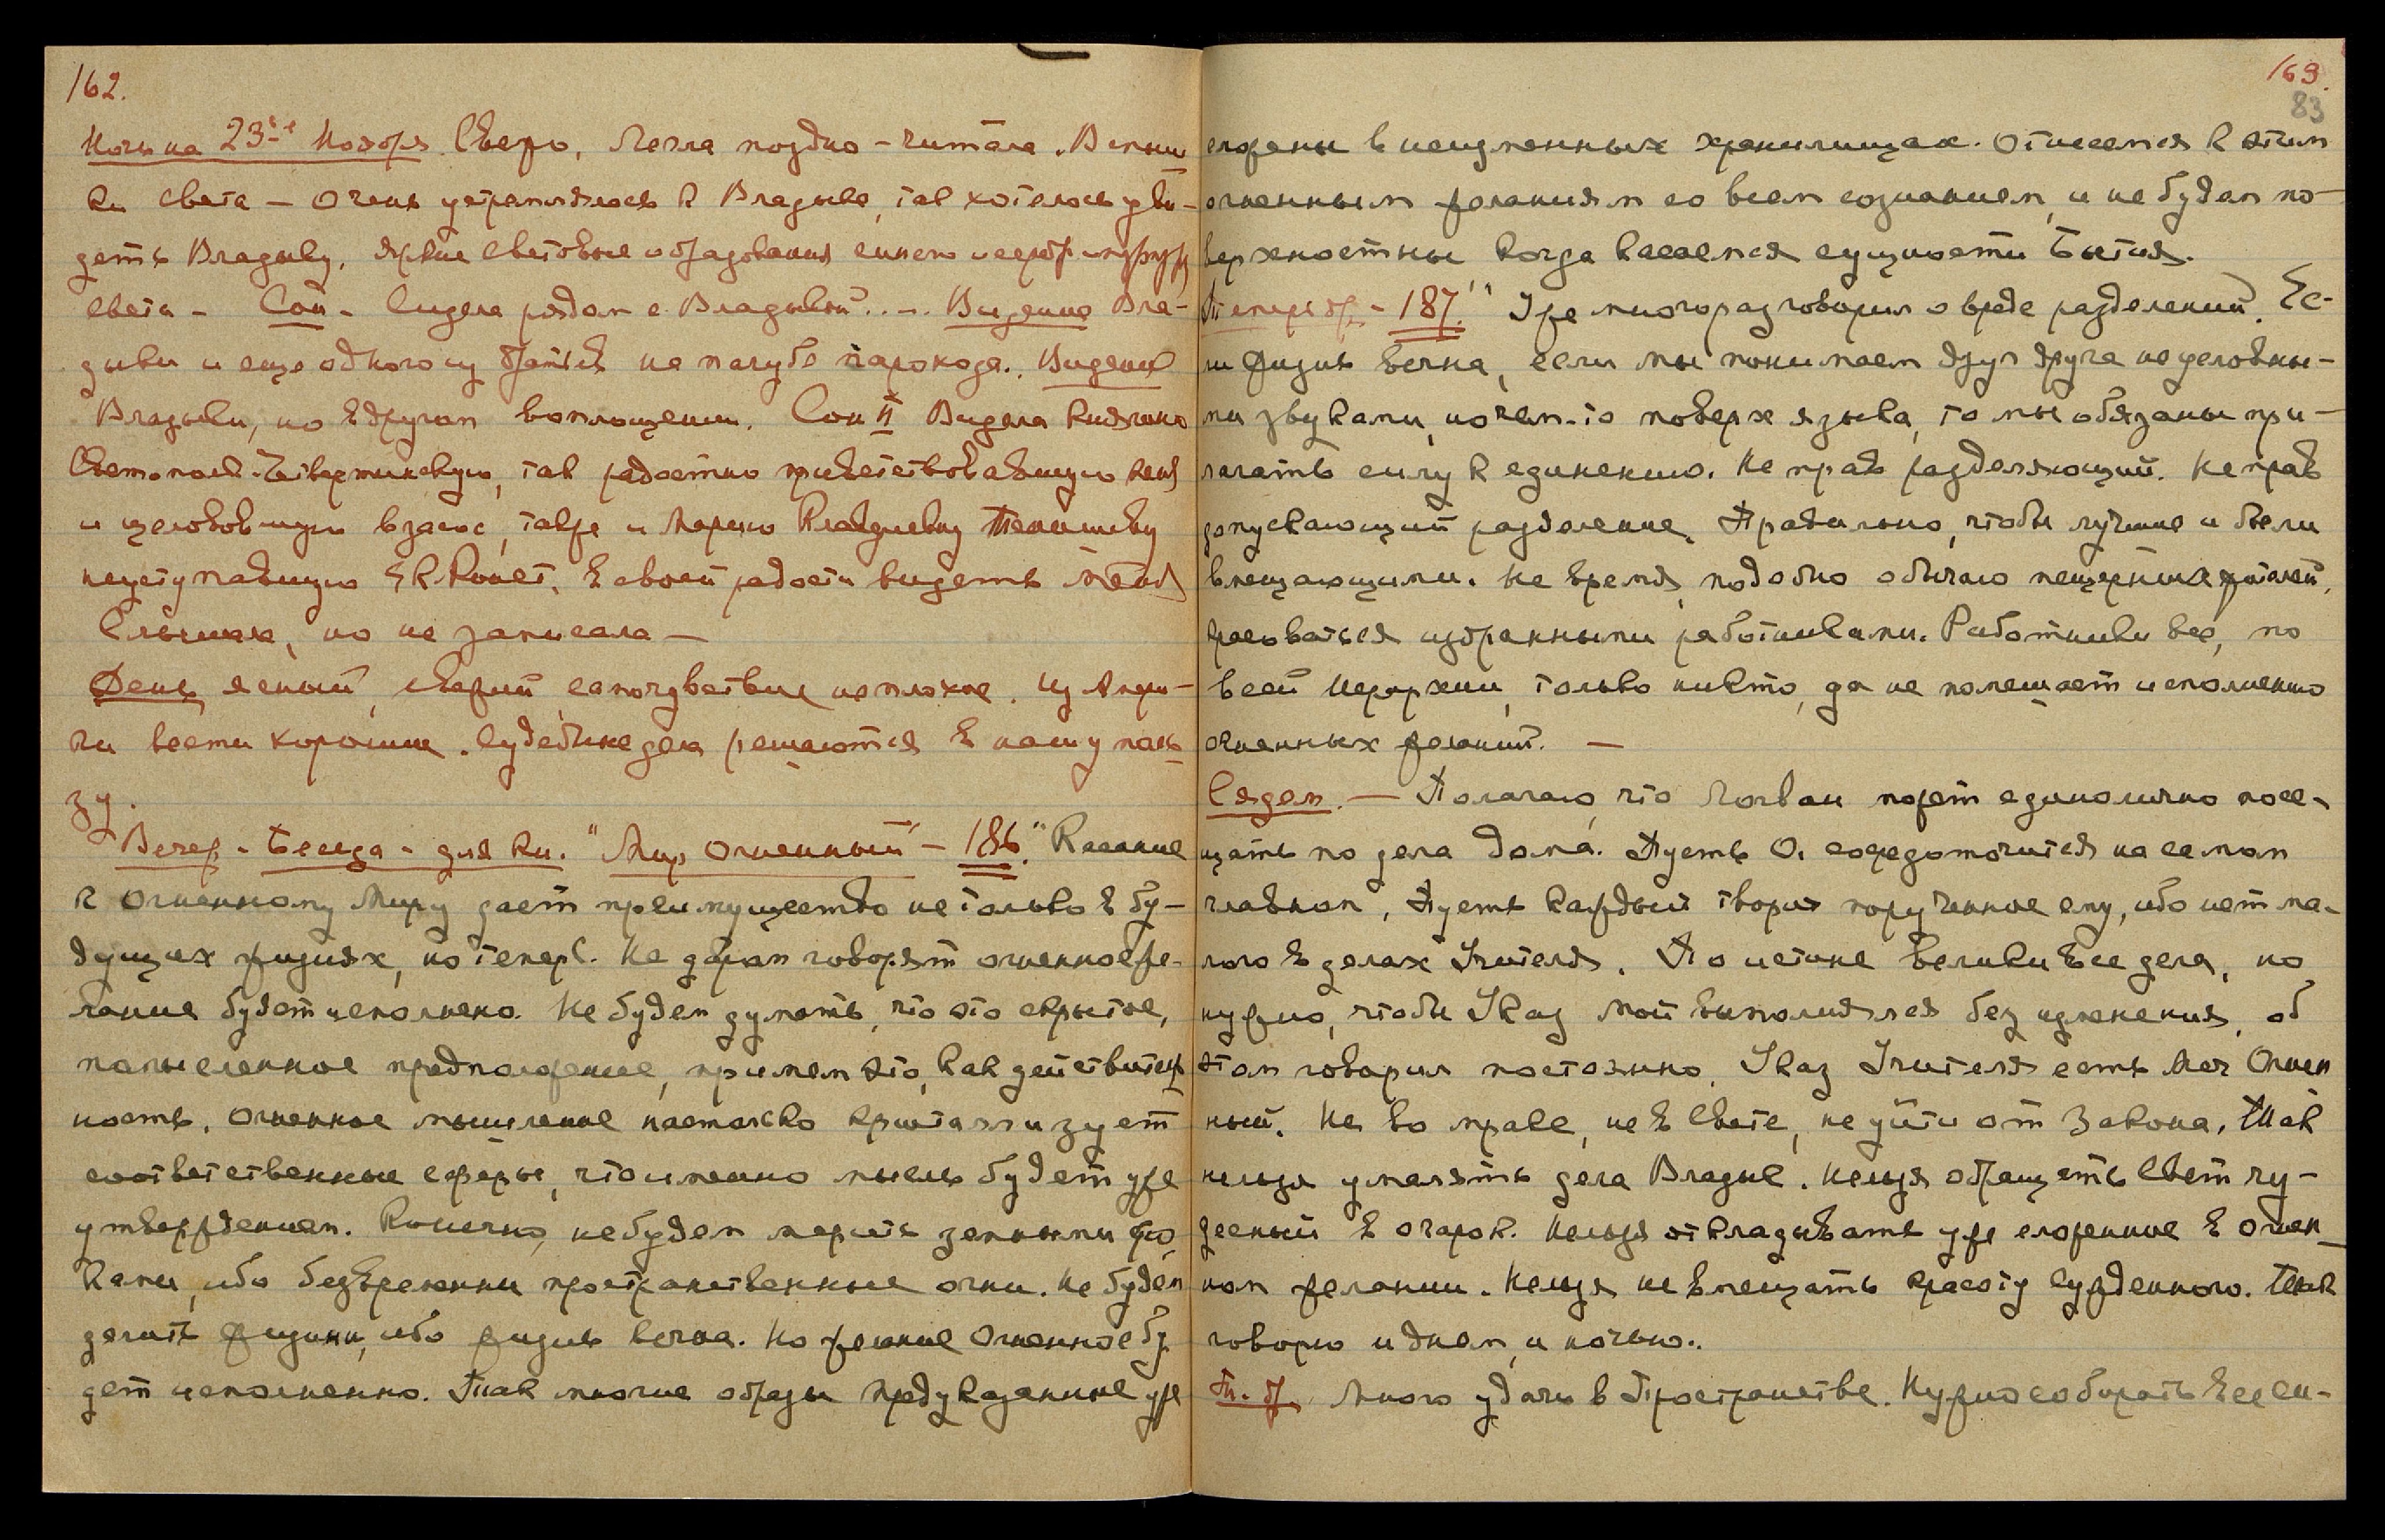 162.
Ночь на 23-е Ноября. Свежо, Легла поздно – читала. Вспыш
ки света – очень устремлялась к Владыке, так хотелось уви-
деть Владыку, яркие световые образования синего и серебр. пурпур
света – Сон – Сидела рядом с Владыкой... – . Видение Вла-
дыки и еще одного из Братьев на палубе парохода. Видение
Владыки, но в другом воплощении. Сон II Видела Княжну
Святополк-Четвертинскую, так радостно приветствовавшую меня
и целовавшую взасос, также и Марию Клавдиевну Тенишеву
неуступавшую ей в своей радости видеть меня
Слышала, но не записала –
День ясный, свежий, самочувствие не плохое. Из Амери-
ки вести хорошие. Судебные дела решаются в нашу поль
зу.
Вечер. Беседа – для кн. "Мир Огненный – 186." Касание
к Огненному Миру дает преимущество не только в бу-
дущих жизнях, но теперь. Не даром говорят огненное же-
лание будет исполнено. Не будем думать, что это скрытое,
помысленное предположение, примем это, как действитель
ность. Огненное мышление настолько кристаллизует
соответственные сферы, что именно мысль будет уже
утверждением. Конечно, не будем мерить земными сро,
ками, ибо безвременны пространственные огни. Не будем
делить жизни, ибо жизнь вечна. Но желание Огненное бу
дет исполненно. Так многие образы предуказанные уже
163.
83
сложены в неизменных хранилищах. Отнесемся к этим
огненным желаниям со всем сознанием, и не будем по-
верхностны, когда касаемся сущности Бытия.
187." Уже много раз говорил о вреде разделений. Ес-
ли жизнь вечна, если мы понимаем друг друга не условны-
ми звуками, но чем-то поверх языка, то мы обязаны при-
лагать силу к единению. Не прав разделяющий. Не прав
допускающий разделение. Правильно, чтобы лучшие и были
вмещающими. Не время, подобно обычаю пещерных жителей,
красоваться избранными работниками. Работники все, по
всей Иерархии, только никто, да не помешает исполнению
огненных желаний. –
Сядем. – Полагаю, что Логван может единолично посе-
щать по дела Дома. Пусть О. сосредоточится на самом
главном, Пусть каждый творит порученное ему, ибо нет ма-
лого в делах Учителя. По истине Велики Все дела, но
нужно, чтобы Указ мой выполнялся без изменения, об
этом говорил постоянно. Указ Учителя есть Меч Огнен
ный. Ни во мраке, ни в Свете, не уйти от Закона. Так
нельзя умалять дела Владык. Нельзя обращать Свет чу-
десный в огарок. Нельзя откладывать уже сложенное в огнен_
ном желании. Нельзя не вмещать красоту сужденного. Так
говорю и днем, и ночью.
Много удачи в Пространстве. Нужно собирать все си-